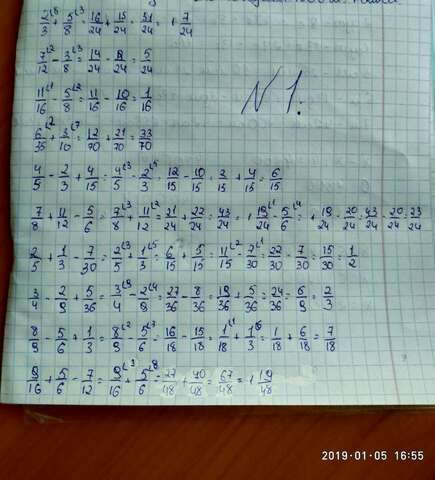 2/3 + 5/8 = 16/24 + 15/24 = 31/24 = 1 7/24
7/12 - 3/8 = 14/24 - 9/24 = 5/24
11/16 - 5/8 = 11/16 - 10/16 = 1/16
N 1.
6/35 + 3/10 = 12/70 + 21/70 = 33/70
4/5 - 2/3 + 4/15 = 4/5 - 2/3 = 12/15 - 10/15 = 2/15 + 4/15 = 6/15
7/8 + 11/12 - 5/6 = 7/8 + 11/12 = 21/24 + 22/24 = 43/24 = 1 19/24 - 5/6 = 1 19/24 - 20/24 = 43/24 - 20/24 = 23/24
2/5 + 1/3 - 7/30 = 2/5 + 1/3 = 6/15 + 5/15 = 11/15 - 7/30 = 22/30 - 7/30 = 15/30 = 1/2
3/4 - 2/9 + 5/36 = 3/4 - 2/9 = 27/36 - 8/36 = 19/36 + 5/36 = 24/36 = 6/9 = 2/3
8/9 - 5/6 + 1/3 = 8/9 - 5/6 = 16/18 - 15/18 = 1/18 + 1/3 = 1/18 + 6/18 = 7/18
9/16 + 5/6 - 7/12 = 9/16 + 5/6 = 27/48 + 40/48 = 67/48 = 1 19/48
2019-01-05 16:55